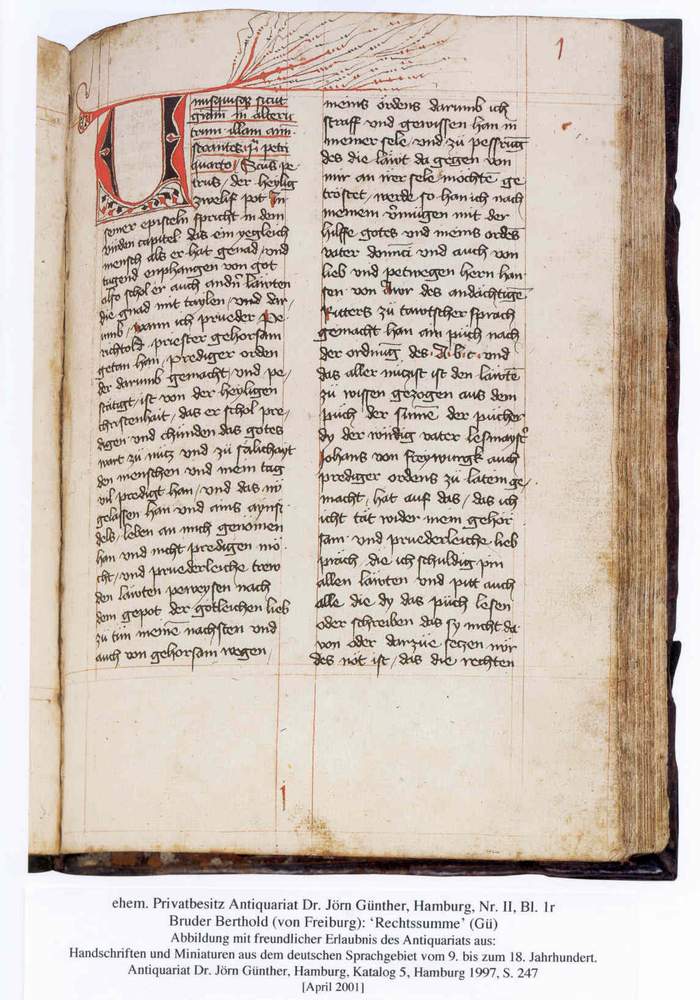 1
Unusquisque sicut
graciam in alteru
trum illam am
strantes j petri
quarto Scus pe
trus / der heylig
zwelif pot In
seiner episteln spricht in dem
virden capitel das ein yegleich
mensch als er hat genad / vnd
tugend enphangen von got
also schol er auch andn läwten
die gnad mit taylen / vnd dar
vmb / wann ich prueder Pe
richtold priester gehorsam
getan han / prediger orden
der darumb gemacht / vnd pe /
stätigt / ist von der heyligen
christenhait / das er schol pre /
digen vnd chünden das gotes
wart zu nütz vnd zu sälichayt
den menschen vnd mein tag
vil predigt han / vnd das nv
gelassen han vnd ains aynsi
dels / leben an mich genomen
han vnd nicht predigen mö
cht / vnd pruederleiche trew
den läwten peweysen nach
dem gepot der götleichen lieb
zu tun meinē nachsten vnd
auch von gehorsam wegen /
meins ordens darumb ich
straff vnd gewissen han in
meiner sele / vnd zu pessrūg
des die läwt da gegen von
mir an irer sele möchte ge
tröstet / werde so han ich nach
meinem vmügen mit der
hilffe gotes vnd meins ordēs
vater dominici vnd auch von
lieb vnd petwegen hern han
sen von Awr des andächtigē
Ritters zu tawtscher sprach
gemacht han ain püch nach
der ordnūg des A b c vnd
das aller nüczist ist den läwtē
zu wissen gezogen aus dem
püch der summē der pücher
dy der wirdig vater lesmaystr
Johans von freywurgk auch
prediger ordens zu latein ge /
macht / hat auf das / das ich
icht tät wider mein gehor
sam vnd pruederleiche lieb
die ich schuldig pin
allen läwten vnd pitt auch
alle die dy das püch lesen
oder schreiben das sy nicht da
von oder darzue seczen wör
des nöt ist / das die rechten
1
ehem. Privatbesitz Antiquariat Dr. Jörn Günther, Hamburg, Nr. II, Bl. 1r
Bruder Berthold (von Freiburg): ‘Rechtssumme’ (Gü)
Abbildung mit freundlicher Erlaubnis des Antiquariats aus:
Handschriften und Miniaturen aus dem deutschen Sprachgebiet vom 9. bis zum 18. Jahrhundert.
Antiquariat Dr. Jörn Günther, Hamburg, Katalog 5, Hamburg 1997, S. 247
[April 2001]